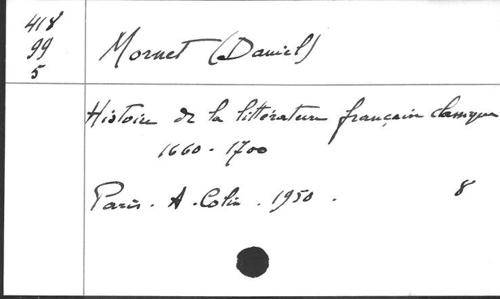 418
99
5
Mornet (Daniel)
Histoire de la littérature française classique
1660 - 1700
Paris. A. Colin. 1950. 8